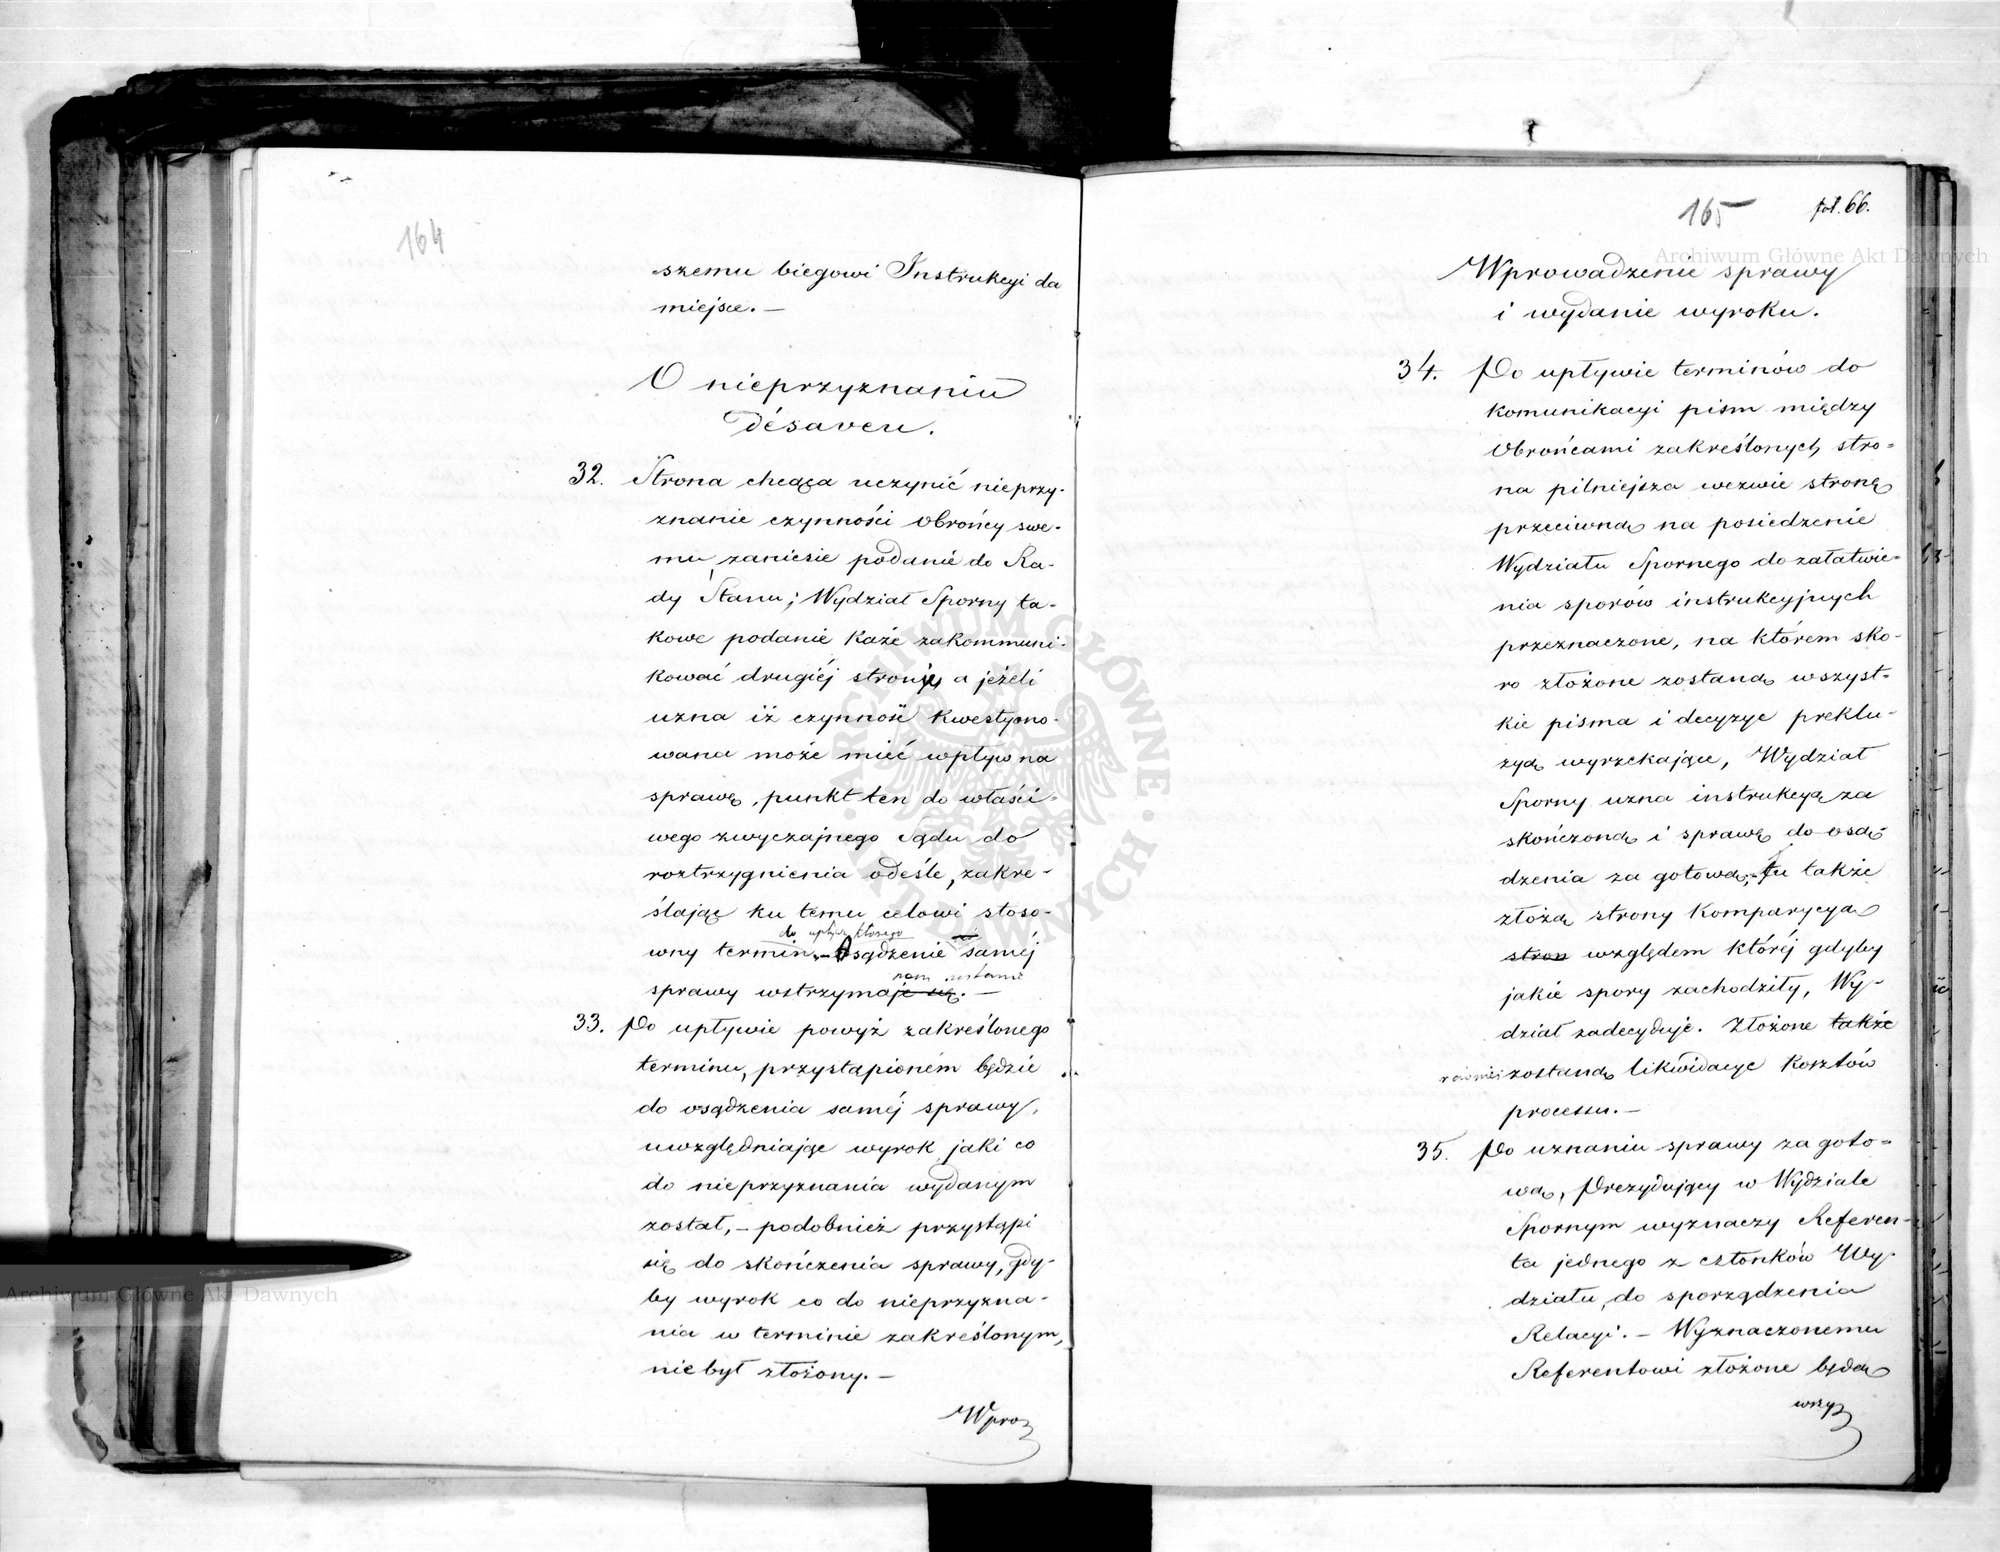 164
szemu biegowi Instrukcyi da
miejsce. —
O nieprzyznaniu
Désaveu.
32. Strona chcąca uczynić nieprzy-
znanie czynności Obrońcy swe-
mu, zaniesie podanie do Ra-
dy Stanu; Wydział Sporny ta-
kowe podanie każe zakommuni-
kować drugiéj stronie, a jeżeli
uzna iż czynność kwestyono-
wana może mieć wpływ na
sprawę, punkt ten do właści-
wego zwyczajnego Sądu do
roztrzygnienia odeśle, zakre-
ślając ku temu celowi stoso-
do upływu którego
wny termin, – Osądzenie saméj
nem zostanie
sprawy wstrzymaje się. —
33. Po upływie powyż zakreślonego
terminu, przystąpioném będzie
do osądzenia saméj sprawy,
uwzględniając wyrok jaki co
do nieprzyznania wydanym
został, – podobnież przystąpi
się do skończenia sprawy, gdy-
by wyrok co do nieprzyzna-
nia w terminie zakreślonym,
niebył złożony. —
Wpro
165 fol. 66.
Wprowadzenie sprawy
i wydanie wyroku.
34. Po upływie terminów do
komunikacyi pism między
Obrońcami zakreślonych, stro-
na pilniejsza wezwie stronę
przeciwną na posiedzenie
Wydziału Spornego do załatwie-
nia sporów instrukcyjnych
przeznaczone, na którem sko-
ro złożone zostaną wszyst-
kie pisma i decyzye preklu-
zyą wyrzekające, Wydział
Sporny uzna instrukcyą za
skończoną i sprawę do osą-
dzenia za gotową, – tu także
złożą strony komparycyą
stron względem któréj gdyby
jakie spory zachodziły, Wy-
dział zadecyduje. Złożone także
również zostaną likwidacye kosztów
processu. —
35. Po uznaniu sprawy za goto-
wą, Prezydujący w Wydziale
Spornym wyznaczy Referen-
ta jednego z członków Wy-
działu, do sporządzenia
Relacyi. – Wyznaczonemu
Referentowi złożone będą
wszy
Archiwum Główne Akt Dawnych
Archiwum Główne Akt Dawnych
ARCHIWUM GŁÓWNE AKT DAWNYCH